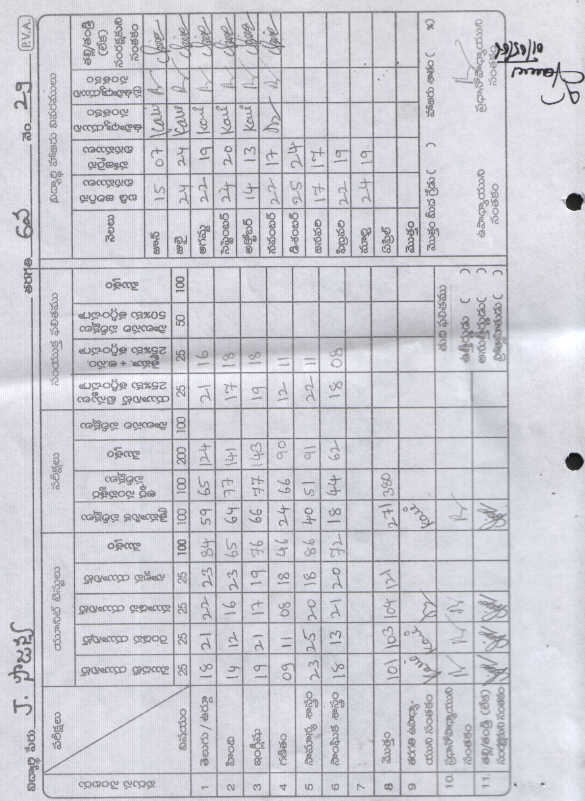 విద్యార్థి పేరు J. ప్రొజెక్ట తరగతి 6వ నం. 29 P.V.A.
పరీక్షలు యూనిట్ టెస్టులు పరీక్షలు సంయుక్త ఫలితము విద్యార్థి హాజరు వివరములు
వరుస సంఖ్య విషయం మొదటి యూనిట్ రెండవ యూనిట్ మూడవ యూనిట్ నాల్గవ యూనిట్ మొత్తం త్రైమాసిక పరీక్షలు అర్ధ సంవత్సర పరీక్షలు మొత్తం సాలుసరి పరీక్షలు మొత్తం
25 25 25 25 100 100 100 200 100 25 25 50 100
1 తెలుగు / ఉర్దూ 18 21 22 23 84 59 65 124 21 16
2 హిందీ 14 12 16 23 65 64 77 141 17 18
3 ఇంగ్లీషు 19 21 17 19 76 66 77 143 19 18
4 గణితం 09 11 08 18 46 24 66 90 12 11
5 సామాన్య శాస్త్రం 23 25 20 18 86 40 51 91 22 11
6 సాంఘిక శాస్త్రం 18 13 21 20 72 18 44 62 18 08
7
8 మొత్తం 101 103 104 121 271 380
9 తరగతి ఉపాధ్యాయుని సంతకం
10. ప్రధానోపాధ్యాయుని సంతకం
11. తల్లి/తండ్రి (లేక) సంరక్షకుని సంతకం
తుది ఫలితము
ఉత్తీర్ణుడు ( )
అనుత్తీర్ణుడు ( )
ప్రోత్సాహితుడు ( )
నెలలు బడి జరిగిన దినములు హాజరైన దినములు ఉపాధ్యాయుని సంతకం ప్రధానోపాధ్యాయుని సంతకం తల్లి/తండ్రి (లేక) సంరక్షకుని సంతకం
జూన్ 15 07
జులై 24 24
ఆగష్టు 22 19
సెప్టెంబర్ 24 20
అక్టోబర్ 14 13
నవంబర్ 22 17
డిశంబర్ 25 24
జనవరి 17 17
ఫిబ్రవరి 22 19
మార్చి 24 19
ఏప్రిల్
మొత్తం
మొత్తం మీద గ్రేడు ( ) హాజరు శాతం ( %)
ఉపాధ్యాయుని సంతకం ప్రధానోపాధ్యాయుని సంతకం